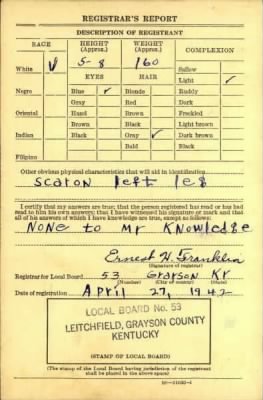 REGISTRAR'S REPORT
DESCRIPTION OF REGISTRANT
RACE HEIGHT (Approx.) WEIGHT (Approx.) COMPLEXION
White ✓ 5-8 160 Sallow
EYES HAIR Light ✓
Negro Blue ✓ Blonde Ruddy
Gray Red Dark
Oriental Hazel Brown Freckled
Brown Black Light brown
Indian Black Gray ✓ Dark brown
Bald Black
Filipino
Other obvious physical characteristics that will aid in identification
Scar on left leg
I certify that my answers are true; that the person registered has read or has had
read to him his own answers; that I have witnessed his signature or mark and that
all of his answers of which I have knowledge are true, except as follows:
None to my Knowledge
Ernest H. Franklin
(Signature of registrar)
Registrar for Local Board 53 Grayson Ky
(Number) (City or county) (State)
Date of registration April 27, 1942
LOCAL BOARD No. 53
LEITCHFIELD, GRAYSON COUNTY
KENTUCKY
(STAMP OF LOCAL BOARD)
(The stamp of the Local Board having jurisdiction of the registrant
shall be placed in the above space)